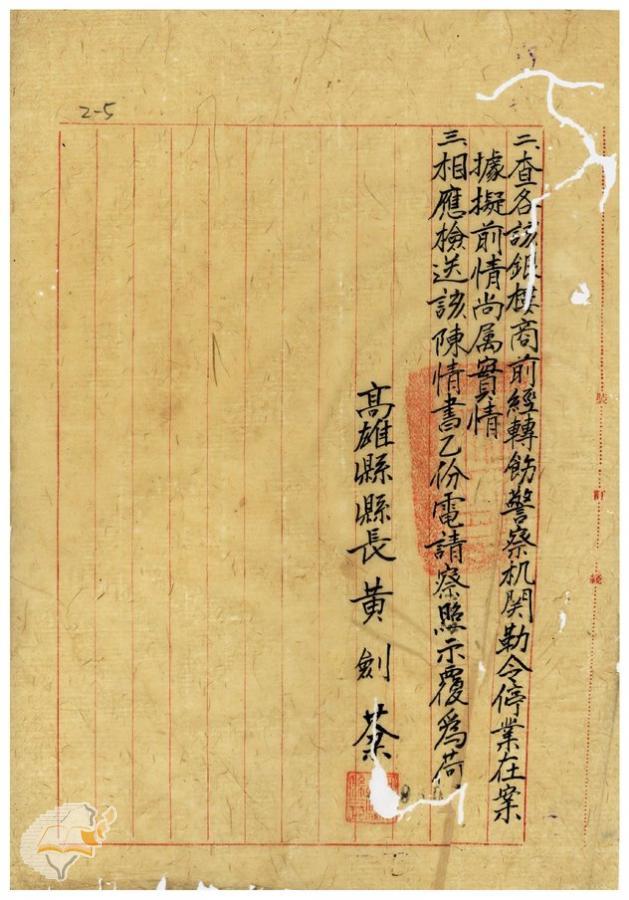 二、查各該銀樓商前經轉飭警察机関勒令停業在案
據擬前情尚属實情
三、相應檢送該陳情書乙份電請察照示覆為荷
高雄縣縣長黃劍棻
2-5
裝
訂
線